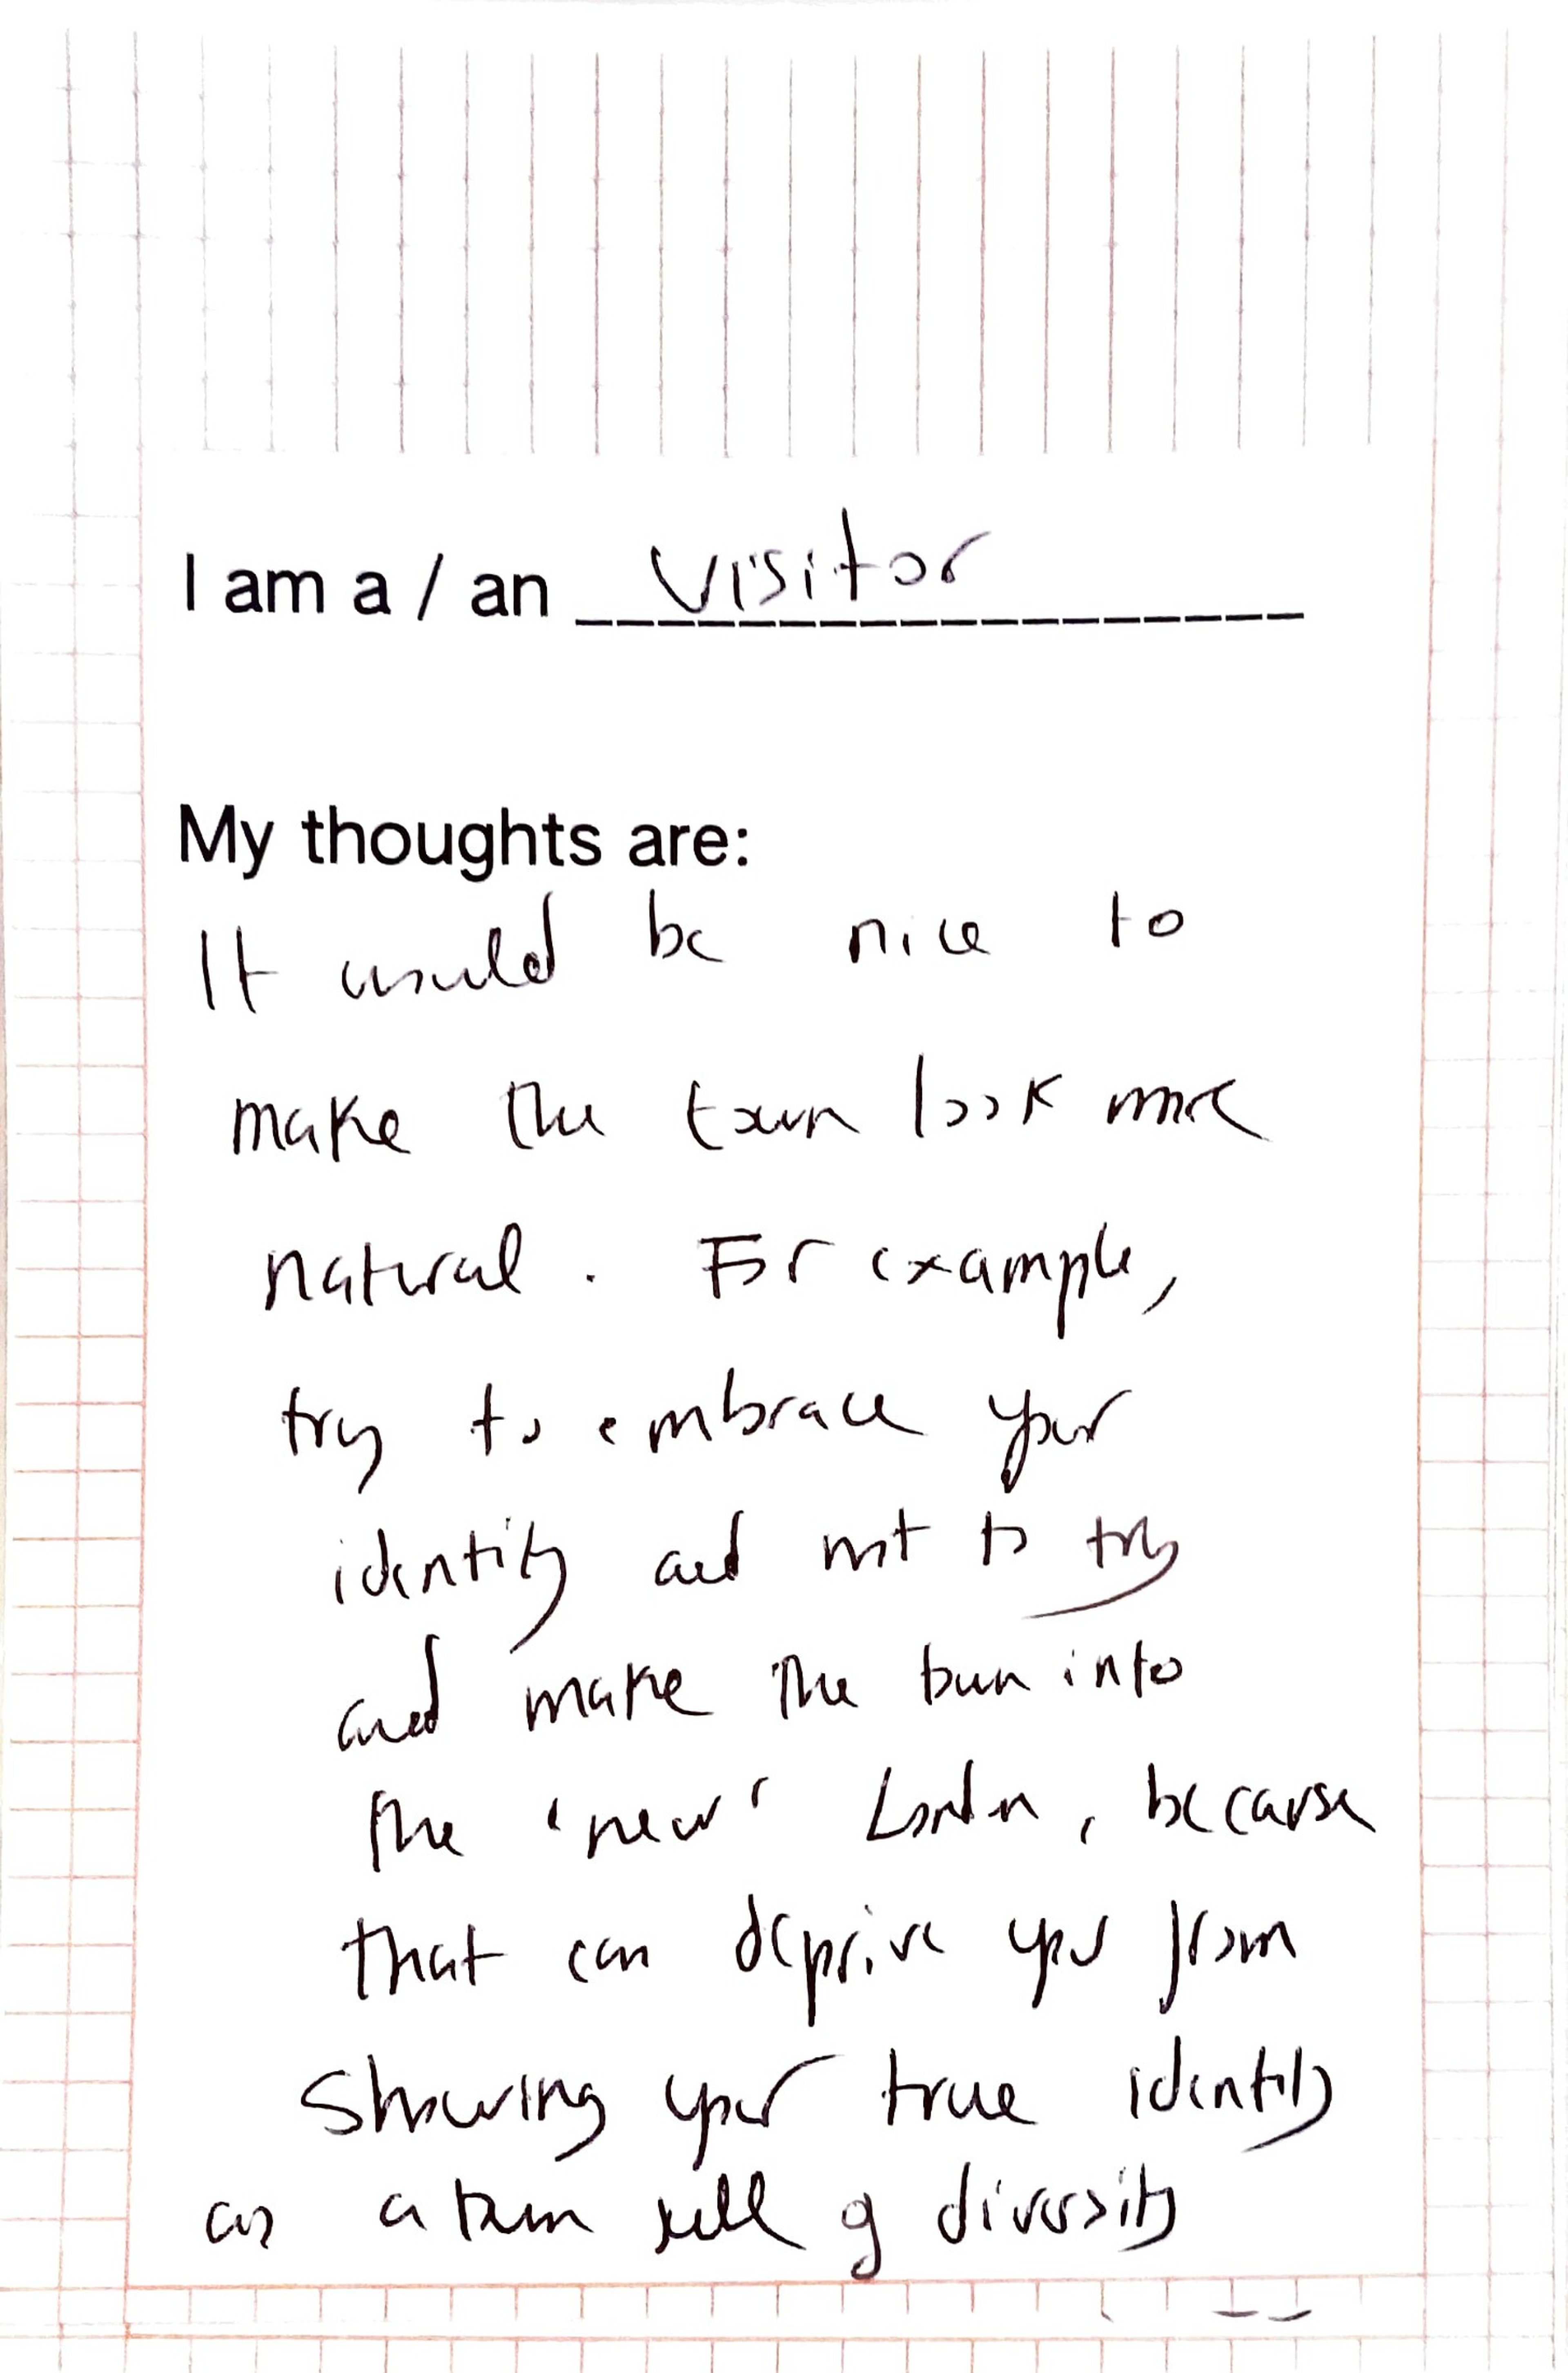 I am a / an visitor
My thoughts are:
It would be nice to
make the town look more
natural. For example,
try to embrace your
identity and not to try
and make the town into
the 'new' London, because
that can deprive you from
showing your true identity
as a town full of diversity